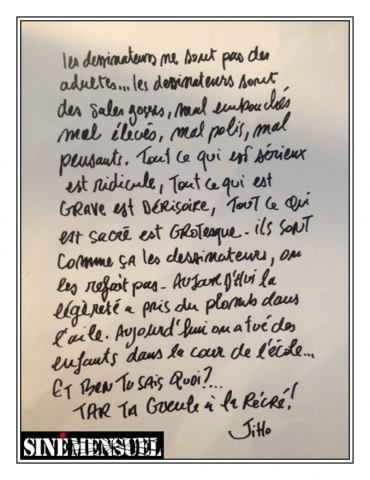 les dessinateurs ne sont pas des
adultes... les dessinateurs sont
des sales gosses, mal embouchés
mal élevés, mal polis, mal
pensants. Tout ce qui est sérieux
est ridicule, Tout ce qui est
GRAVE est DÉRISOIRE, TOUT CE QUI
EST SACRÉ EST GROTESQUE. ils SONT
COMME ÇA les DESSINATEURS, ON
les refait pas. AUJOURD'HUI la
légèreté a pris du plomb dans
l'aile. Aujourd'hui on a tué des
enfants dans la cour de l'école...
ET BEN TU SAIS QUOI?...
TAR TA GUEULE à la RÉCRÉ!
JiHo
SINÉMENSUEL